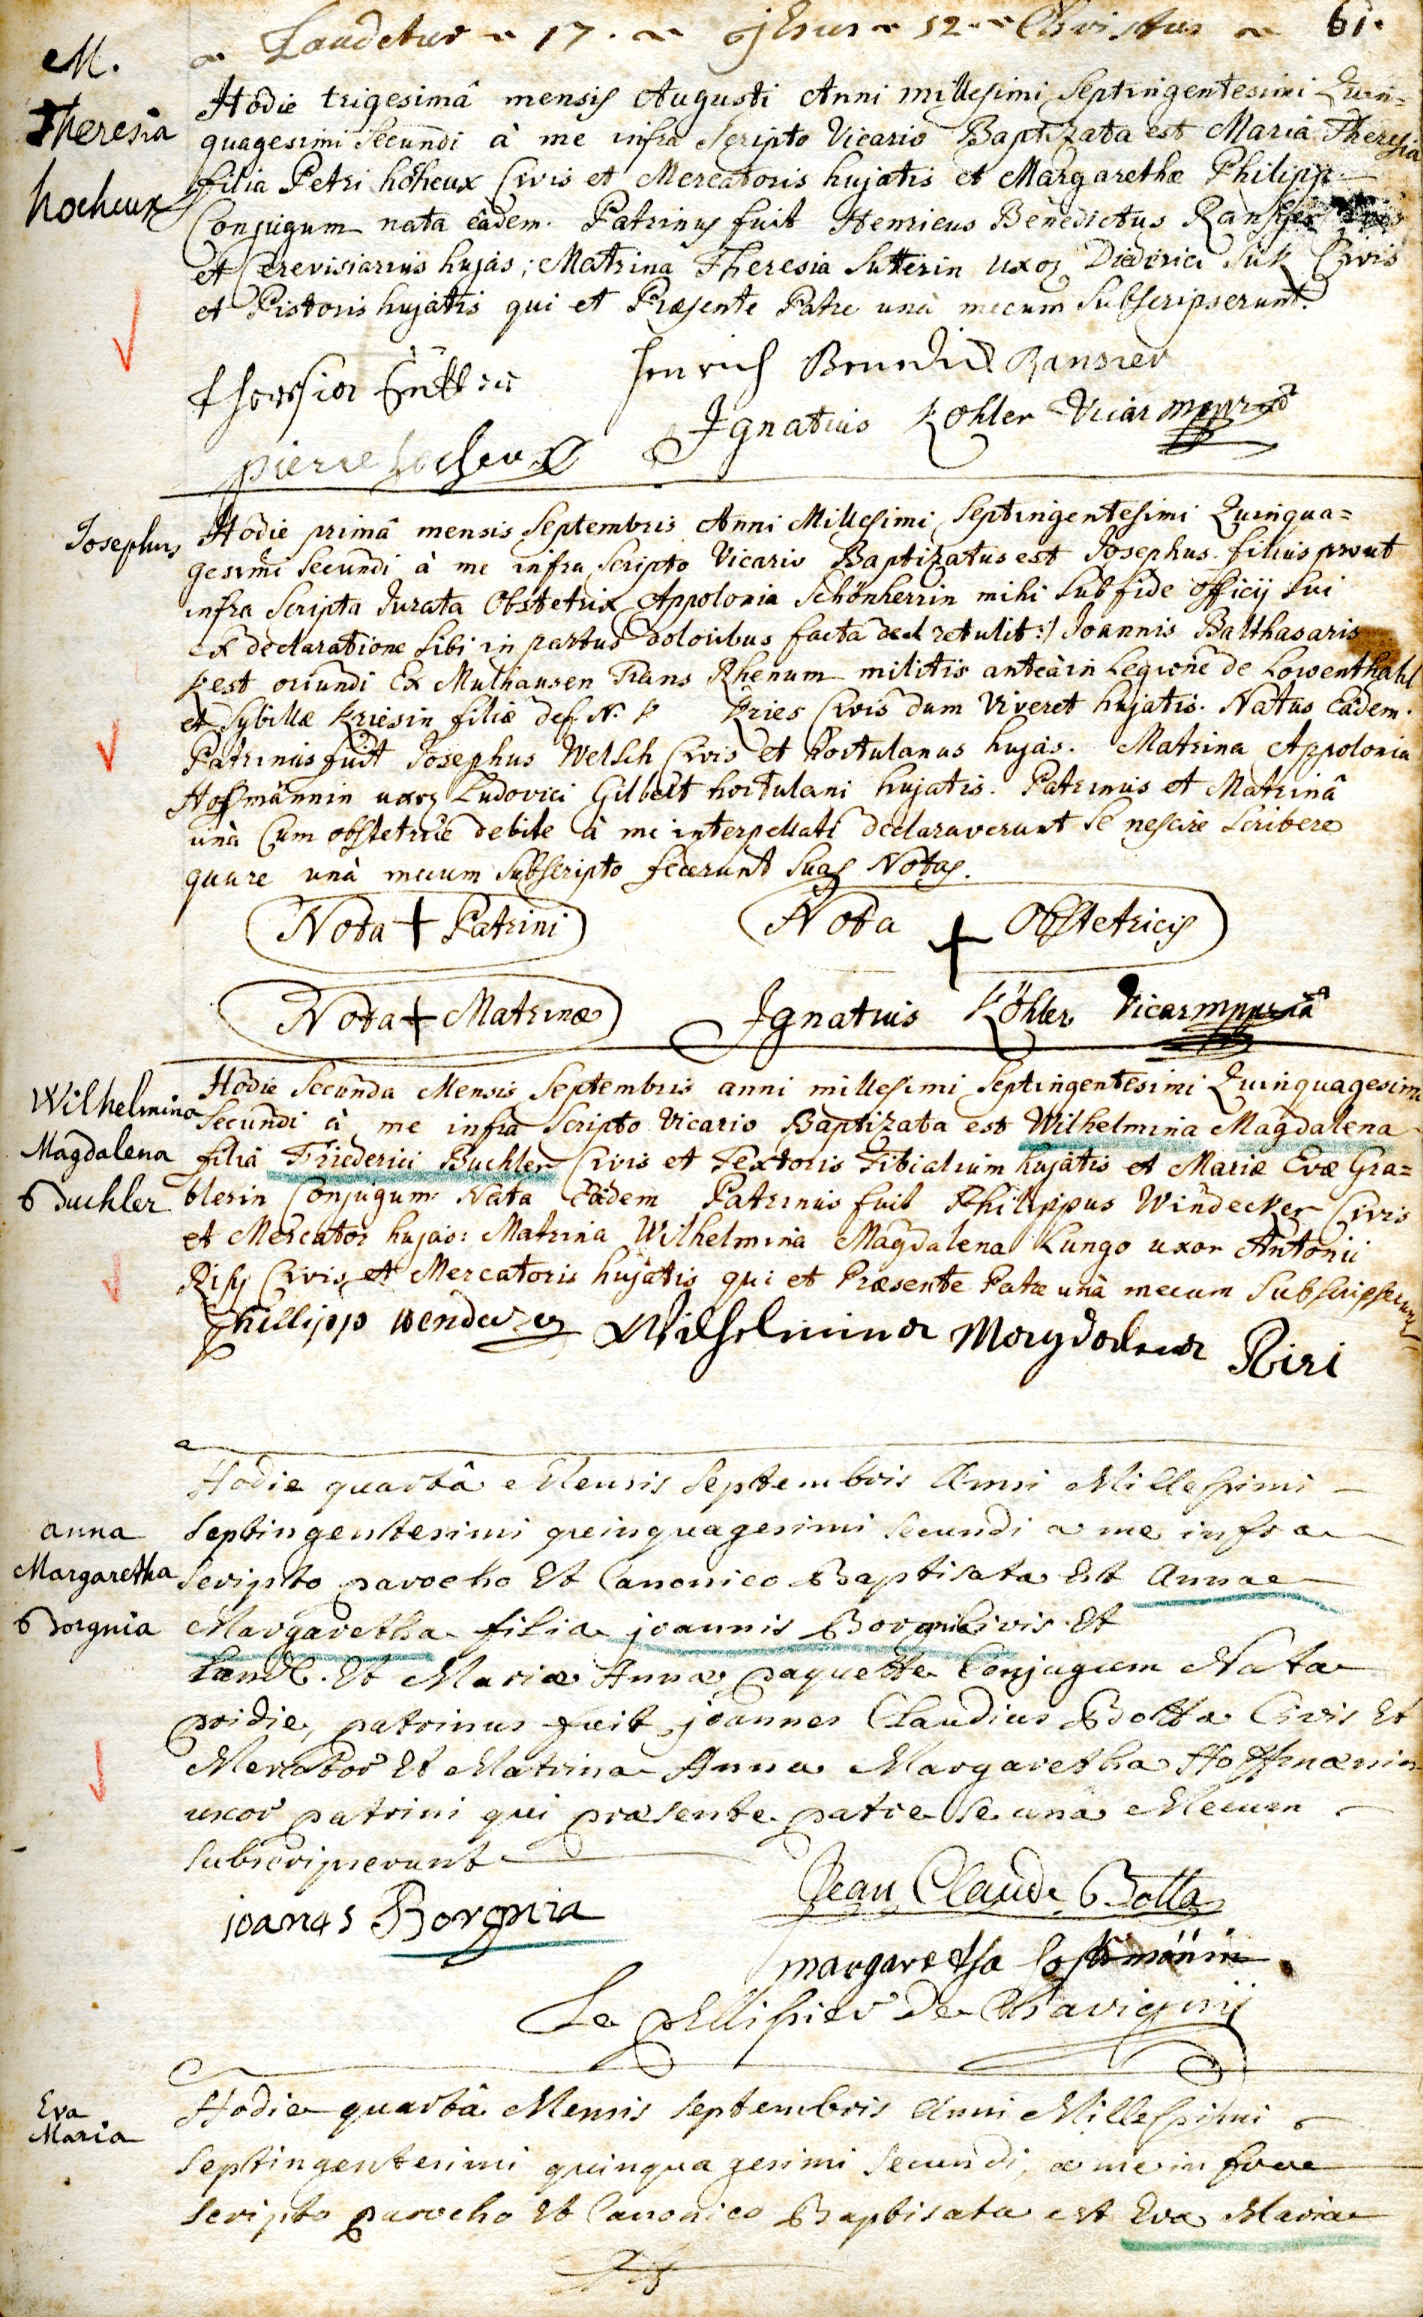 Laudetur 17. Jhsus 52. Christus 61.
M.
Theresia
hocheux
Hodie trigesimâ mensis Augusti Anni millesimi Septingentesimi Quin=
quagesimi Secundi à me infra Scripto Vicario Baptizata est Maria Theresia
filia Petri hocheux Civis et Mercatoris hujatis et Margarethæ Philipp
Conjugum nata eâdem. Patrinus fuit Henricus Benedictus
et Cerevisiarius hujas; Matrina Theresia Sutterin uxor Diedirici Civis
et Pistoris hujatis qui et Præsente Patre unà mecum Subscripserunt.
henrich Benedict Ransier
Ignatius Kohler Vicar mppriâ
pierre hocheux
Josephus
Hodie primâ mensis Septembris Anni Millesimi Septingentesimi Quinqua=
gesimi Secundi à me infra Scripto Vicario Baptizatus est Josephus filius prout
infra Scripta Jurata Obstetrix Appolonia Schönherrin mihi sub fide officij sui
ex declaratione sibi in partus doloribus facta retulit:/ Joannis Balthasaris
Kest oriundi Ex Mulhausen Trans Rhenum militis anteà in Legione de Lowenthahl
et Sybillæ Kriesin filiæ def. N. Kries Civis dum Viveret hujatis. Natus Eâdem.
Patrinus fuit Josephus Welsch Civis et hortulanus hujas. Matrina Appolonia
Hoffmännin uxor Ludovici Gilbert hortulani hujatis. Patrinus et Matrinâ
unà Cum obstetrice debite à me interpellati declaraverunt se nescire Scribere
quare unà mecum Subscripto fecerunt Suas Notas.
Nota + Patrini
Nota + Obstetricis
Nota + Matrinæ
Ignatius Köhler Vicar mppriâ
Wilhelmina
Magdalena
Buchler
Hodie Secunda Mensis Septembris anni millesimi Septingentesimi Quinquagesimi
Secundi à me infra Scripto Vicario Baptizata est Wilhelmina Magdalena
filia Friederici Buchler Civis et Textoris Tibialium hujatis et Mariæ Evæ Gra=
blerin Conjugum Nata Eâdem Patrinus fuit Philippus Windecker Civis
et Mercator hujas: Matrina Wilhelmina Magdalena Lungo uxor Antonii
Risy Civis et Mercatoris hujatis qui et Præsente Patre unà mecum Subscripserunt
Phillipp Wilhelmina Magdalena Risi
anna
Margaretha
Borgnia
Hodie quartâ Mensis Septembris Anni Millesimi
Septingentesimi quinquagesimi secundi a me infra
Scripto parocho Et Canonico Baptisata Est Anna
Margaretha filia joannis Borgnia Civis Et
Et Mariæ Annæ paquette Conjugum Nata
pridie, patrinus fuit joannes Claudius Bolta Civis Et
Mercator Et Matrina Anna Margaretha Hoffmannin
uxor patrini qui præsente patre se unâ Mecum
subscripserunt
joanes Borgnia
Jean Claude Bolla
margaretha hoffmännin
Le pellissier De Chavigny
Eva
Maria
Hodie quartâ Mensis Septembris Anni Millesimi
Septingentesimi quinquagesimi Secundi, a me infra
Scripto parocho Et Canonico Baptisata est Eva Maria